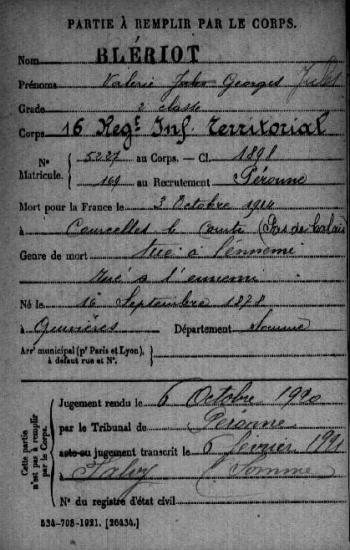 PARTIE À REMPLIR PAR LE CORPS.
Nom BLÉRIOT
Prénoms Valerie Jules Georges
Grade 2e classe
Corps 16 Regt Inf. Territorial
N° Matricule. 5227 au Corps. — Cl. 1898
169 au Recrutement Péronne
Mort pour la France le 3 Octobre 1914
à Courcelles le Comte (Pas de Calais)
Genre de mort Tué à l'ennemi
Tué à l'ennemi
Né le 16 Septembre 1878
à Département Somme
Arrt municipal (pr Paris et Lyon), à défaut rue et N°.
Cette partie n'est pas à remplir par le Corps.
Jugement rendu le 6 Octobre 1920
par le Tribunal de Péronne
acte ou jugement transcrit le 6 février 1921
à (Somme)
N° du registre d'état civil
534-708-1921. [26434.]